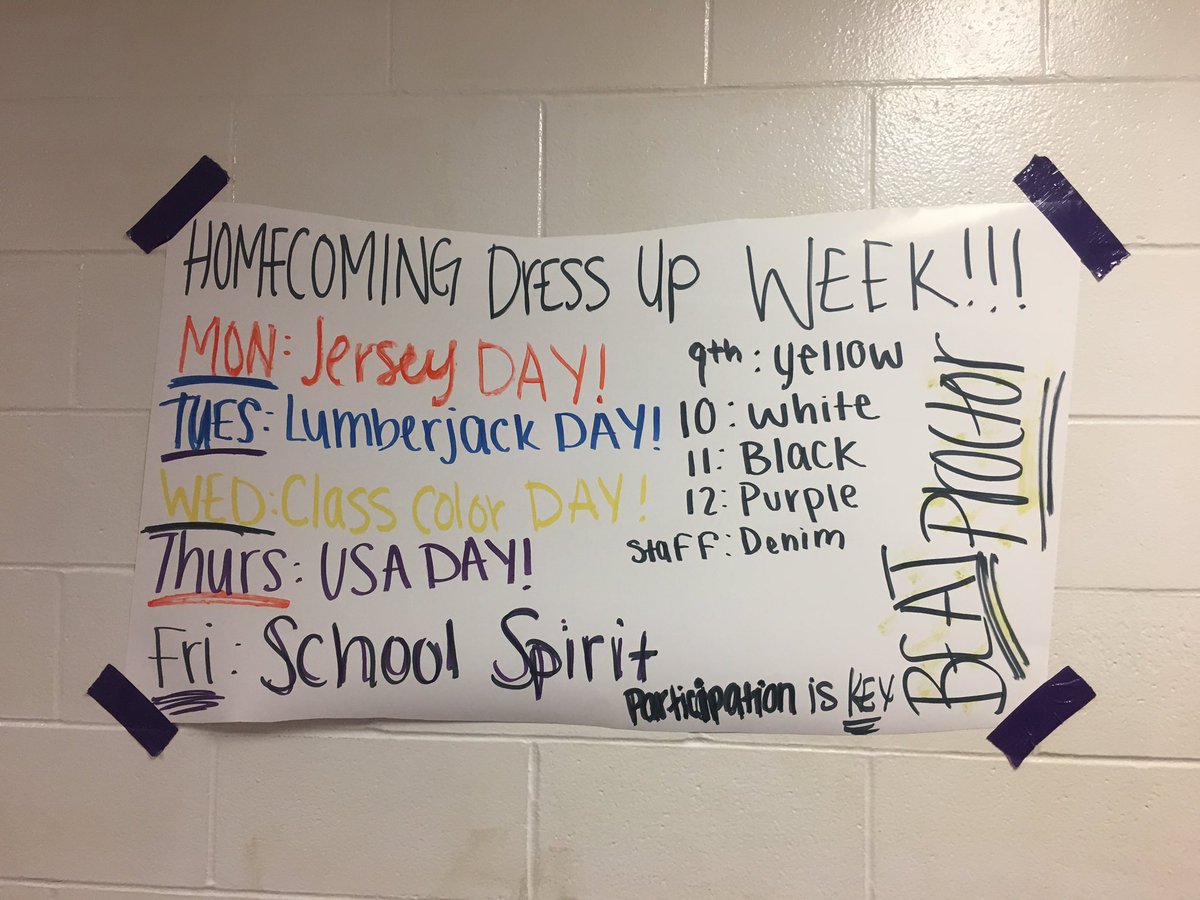 HOMECOMING DRESS UP WEEK!!!
MON: Jersey DAY!
TUES: Lumberjack DAY!
WED: Class Color DAY!
Thurs: USA DAY!
Fri: School Spirit
9th: yellow
10: White
11: Black
12: Purple
Staff: Denim
Participation is KEY
BEAT PROCtor